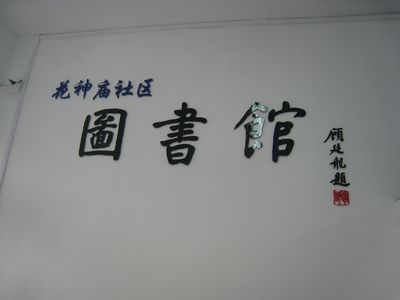 花神庙社区
圖書館
顾廷龍題